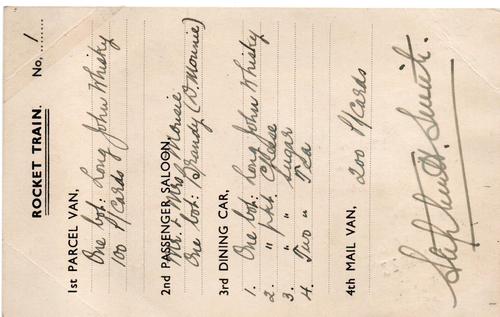 ROCKET TRAIN. No, 1
1st PARCEL VAN,
One bot: Long John Whisky
100 P/Cards
2nd PASSENGER SALOON,
Mr. & Mrs Mousie
One bot: Brandy (D. Mounie)
3rd DINING CAR,
1. One bot: Long John Whisky
2. " pkt Cheese
3. " " Sugar
4. Two " Tea
4th MAIL VAN, 200 P/Cards
Stephen H. Smith.